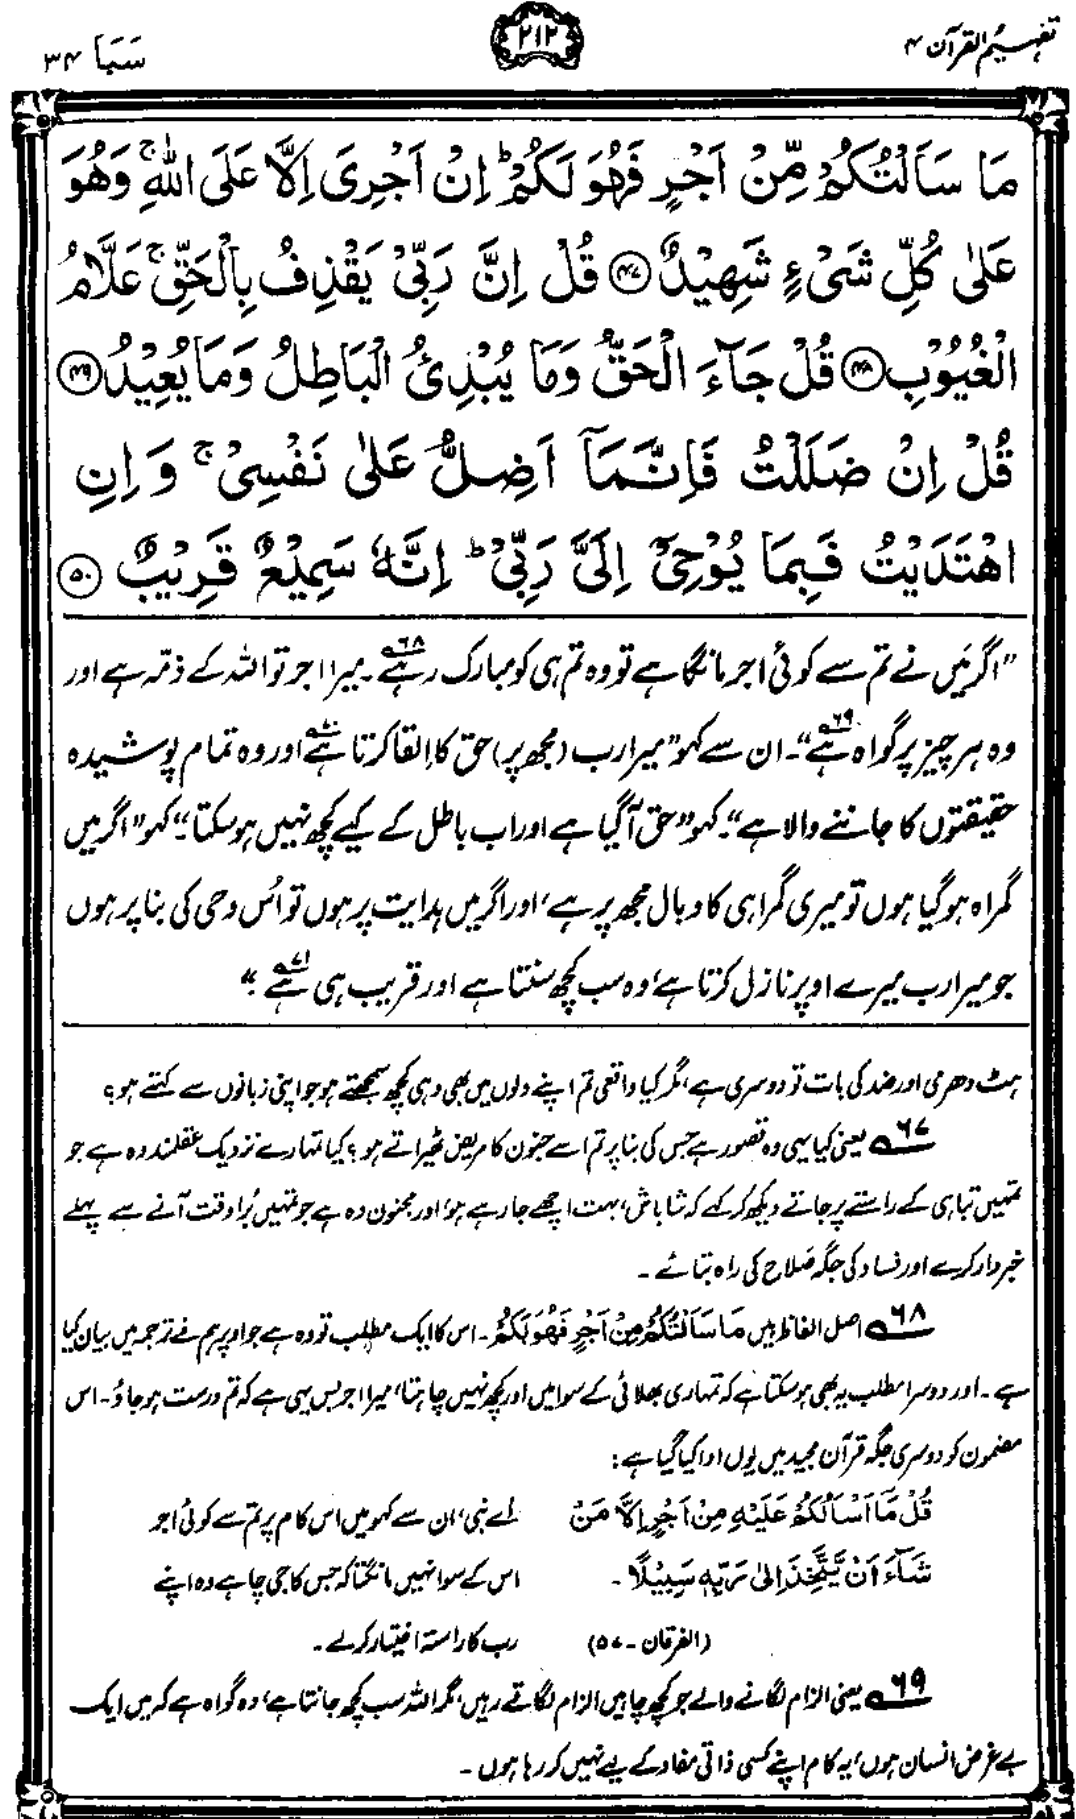 تفہیم القرآن ۴
۲۱۲
سَبَا ۳۴
مَا سَاَلْتُكُمْ مِّنْ اَجْرٍ فَهُوَ لَكُمْ ؕ اِنْ اَجْرِىَ اِلَّا عَلَى اللّٰهِ ۚ وَهُوَ
عَلٰى كُلِّ شَىْءٍ شَهِيْدٌ ﴿۴۷﴾ قُلْ اِنَّ رَبِّىْ يَقْذِفُ بِالْحَقِّ ۚ عَلَّامُ
الْغُيُوْبِ ﴿۴۸﴾ قُلْ جَآءَ الْحَقُّ وَمَا يُبْدِئُ الْبَاطِلُ وَمَا يُعِيْدُ ﴿۴۹﴾
قُلْ اِنْ ضَلَلْتُ فَاِنَّمَاۤ اَضِلُّ عَلٰى نَفْسِىْ ۚ وَ اِنِ
اهْتَدَيْتُ فَبِمَا يُوْحِىْۤ اِلَىَّ رَبِّىْ ؕ اِنَّهٗ سَمِيْعٌ قَرِيْبٌ ﴿۵۰﴾
”اگر مَیں نے تم سے کوئی اجر مانگا ہے تو وہ تم ہی کو مبارک رہے۶۸۔ میرا اجر تو اللہ کے ذمّہ ہے اور
وہ ہر چیز پر گواہ ہے۶۹“۔ ان سے کہو ”میرا رب (مجھ پر) حق کا اِلقا کرتا ہے۷۰ اور وہ تمام پوشیدہ
حقیقتوں کا جاننے والا ہے“۔ کہو ”حق آگیا ہے اور اب باطل کے کیے کچھ نہیں ہو سکتا“۔ کہو ”اگر میں
گمراہ ہو گیا ہوں تو میری گمراہی کا وبال مجھ پر ہے، اور اگر میں ہدایت پر ہوں تو اُس وحی کی بنا پر ہوں
جو میرا رب میرے اوپر نازل کرتا ہے، وہ سب کچھ سنتا ہے اور قریب ہی ہے۷۱۔“
ہٹ دھرمی اور ضد کی بات تو دوسری ہے، مگر کیا واقعی تم اپنے دلوں میں بھی وہی کچھ سمجھتے ہو جو اپنی زبانوں سے کہتے ہو؟
۶۷ یعنی کیا یہی وہ قصور ہے جس کی بنا پر تم اسے جنون کا مریض ٹھیراتے ہو؟ کیا تمہارے نزدیک عقلمند وہ ہے جو
تمہیں تباہی کے راستے پر جاتے دیکھ کر کہے کہ شاباش، بہت اچھے جا رہے ہو، اور مجنون وہ ہے جو تمہیں بُرا وقت آنے سے پہلے
خبردار کرے اور فساد کی جگہ صَلاح کی راہ بتائے ۔
۶۸ اصل الفاظ ہیں مَا سَاَلْتُكُمْ مِنْ اَجْرٍ فَهُوَ لَكُمْ ۔ اس کا ایک مطلب تو وہ ہے جو اوپر ہم نے ترجمہ میں بیان کیا
ہے ۔ اور دوسرا مطلب یہ بھی ہو سکتا ہے کہ تمہاری بھلائی کے سوا میں اور کچھ نہیں چاہتا، میرا اجر بس یہی ہے کہ تم درست ہو جاؤ۔ اس
مضمون کو دوسری جگہ قرآن مجید میں یوں ادا کیا گیا ہے :
قُلْ مَا اَسْاَلُكُمْ عَلَيْهِ مِنْ اَجْرٍ اِلَّا مَنْ
شَآءَ اَنْ يَّتَّخِذَ اِلٰى رَبِّهٖ سَبِيْلًا ۔
(الفرقان ۔ ۵۷)
اے نبی، ان سے کہو میں اس کام پر تم سے کوئی اجر
اس کے سوا نہیں مانگتا کہ جس کا جی چاہے وہ اپنے
رب کا راستہ اختیار کرلے ۔
۶۹ یعنی الزام لگانے والے جو کچھ چاہیں الزام لگاتے رہیں، مگر اللہ سب کچھ جانتا ہے، وہ گواہ ہے کہ میں ایک
بے غرض انسان ہوں، یہ کام اپنے کسی ذاتی مفاد کے لیے نہیں کر رہا ہوں ۔